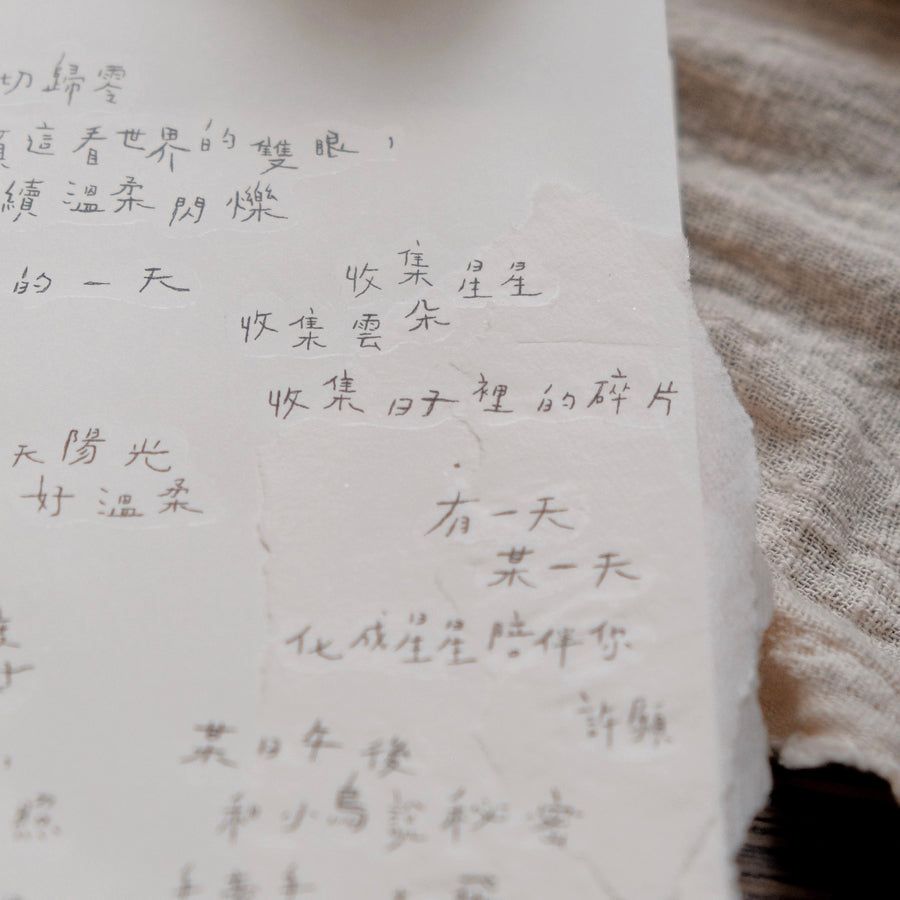 切歸零
這看世界的雙眼，
續溫柔閃爍
的一天
收集星星
收集雲朵
收集日子裡的碎片
天陽光
好溫柔
有一天
某一天
化成星星陪伴你
許願
某日午後
和小鳥說秘密